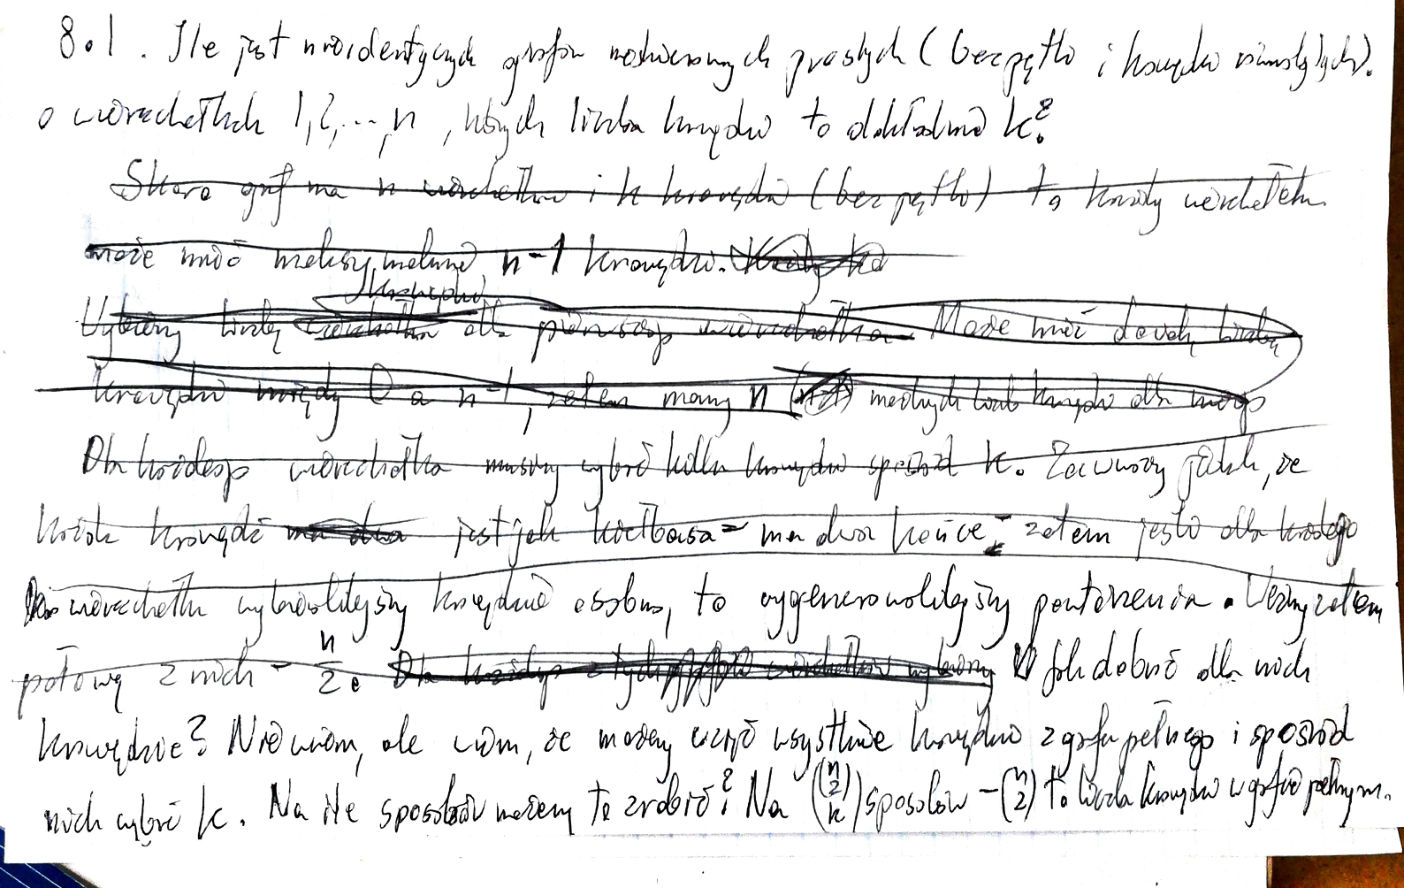 8.1. Ile jest nieidentycznych grafów nieskierowanych prostych (bez pętli i krawędzi równoległych).
o wierzchołkach 1,2,...,n, których liczba krawędzi to dokładnie k?
Skoro graf ma n wierzchołków i k krawędzi (bez pętli) to każdy wierzchołek
może mieć maksymalnie n-1 krawędzi.
Wybierzmy liczbę krawędzi dla pierwszego wierzchołka. Może mieć dowolną liczbę
krawędzi między 0 a n-1, zatem mamy n możliwych liczb krawędzi dla niego
Dla każdego wierzchołka musimy wybrać kilka krawędzi spośród k. Zauważmy jednak, że
każda krawędź jest jak kiełbasa - ma dwa końce - zatem jeśli dla każdego
wierzchołka wybralibyśmy krawędzie osobno, to wygenerowalibyśmy powtórzenia. Weźmy zatem
połowę z nich - n/2. Jak dobrać dla nich
krawędzie? Nie wiem, ale wiem, że możemy wziąć wszystkie krawędzie z grafu pełnego i spośród
nich wybrać k. Na ile sposobów możemy to zrobić? Na \binom{\binom{n}{2}}{k} sposobów - \binom{n}{2} to liczba krawędzi w grafie pełnym.